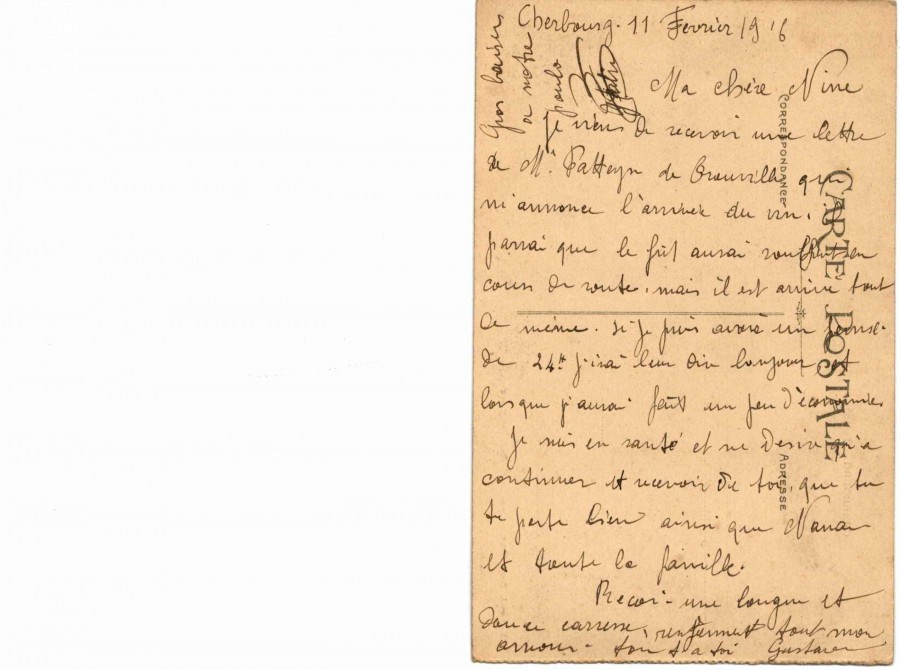 Cherbourg. 11 Fevrier 1916
Gros baisers
a notre
paulo
Ma chère Nine
je viens de recevoir une lettre
de Mr de qui
m'annonce l'arrivée du vin. il
parrai que le fut aurai en
cours de route. mais il est arrivé tout
de même. si je puis avoir un
de 24h j'irai leur dire bonjour et
lorsque j'aurai fait un peu d'économie.
Je suis en santé et ne desire qu'a
continuer et recevoir de toi, que tu
te porte bien ainsi que
et toute la famille.
Recoi une longue et
douce carresse, renfermant tout mon
amour. ton t a toi Gustave
CARTE POSTALE
CORRESPONDANCE
ADRESSE